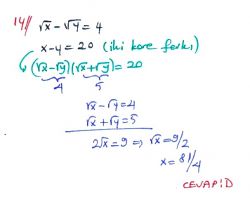 14// √x - √y = 4
x - y = 20 (iki kare farkı)
(√x - √y)(√x + √y) = 20
4 5
√x - √y = 4
√x + √y = 5
2√x = 9 ⇒ √x = 9/2
x = 81/4
CEVAP: D